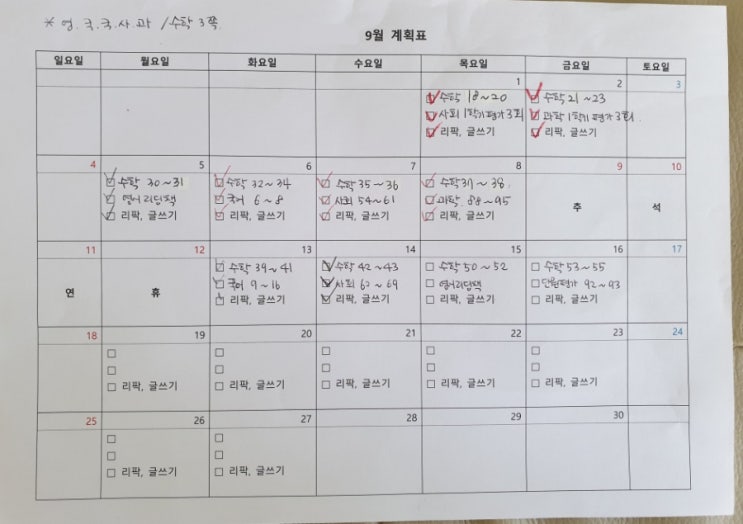 * 영. 국. 국. 사. 과 / 수학 3쪽
9월 계획표
일요일 월요일 화요일 수요일 목요일 금요일 토요일
1 2 3
☑ 수학 18~20 ☑ 수학 21~23
☑ 사회 1학기평가 3회 ☑ 과학 1학기평가 3회.
☑ 리딱, 글쓰기 ☑ 리딱, 글쓰기
4 5 6 7 8 9 10
☑ 수학 30~31 ☑ 수학 32~34 ☑ 수학 35~36 ☑ 수학 37~38.
☑ 영어리딩책 ☑ 국어 6~8 ☑ 사회 54~61 ☑ 과학 88~95 추 석
☑ 리딱, 글쓰기 ☑ 리딱, 글쓰기 ☑ 리딱, 글쓰기 ☑ 리딱, 글쓰기
11 12 13 14 15 16 17
☑ 수학 39~41 ☑ 수학 42~43 □ 수학 50~52 □ 수학 53~55
연 휴 ☑ 국어 9~16 ☑ 사회 62~69 □ 영어리딩책 □ 단원평가 92~93
☑ 리딱, 글쓰기 ☑ 리딱, 글쓰기 □ 리딱, 글쓰기 □ 리딱, 글쓰기
18 19 20 21 22 23 24
□ □ □ □ □
□ □ □ □ □
□ 리딱, 글쓰기 □ 리딱, 글쓰기 □ 리딱, 글쓰기 □ 리딱, 글쓰기 □ 리딱, 글쓰기
25 26 27 28 29 30
□ □
□ □
□ 리딱, 글쓰기 □ 리딱, 글쓰기